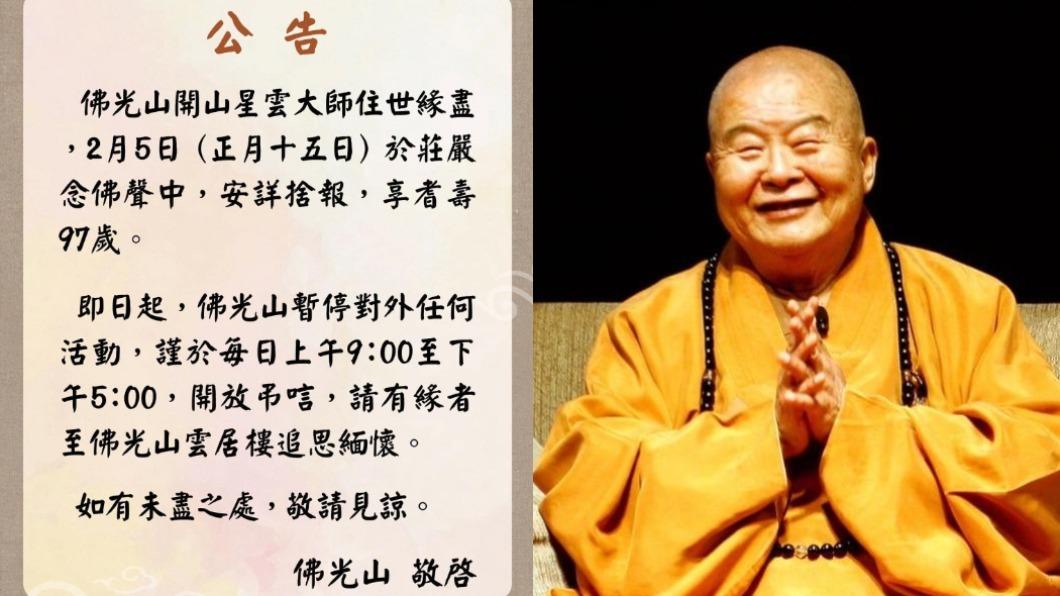 公告
佛光山開山星雲大師住世緣盡
，2月5日（正月十五日）於莊嚴
念佛聲中，安詳捨報，享耆壽
97歲。
即日起，佛光山暫停對外任何
活動，謹於每日上午9:00至下
午5:00，開放弔唁，請有緣者
至佛光山雲居樓追思緬懷。
如有未盡之處，敬請見諒。
佛光山 敬啓